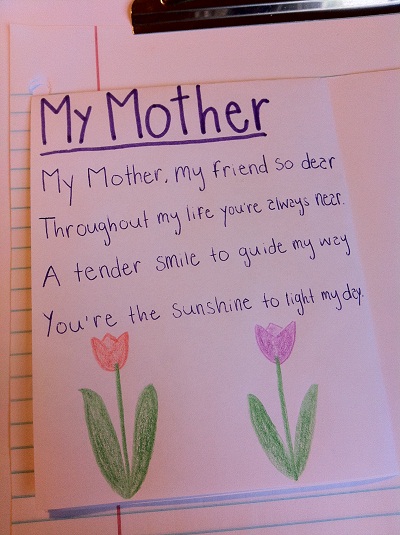 My Mother
My Mother, my friend so dear
Throughout my life you're always near.
A tender smile to guide my way
You're the sunshine to light my day.